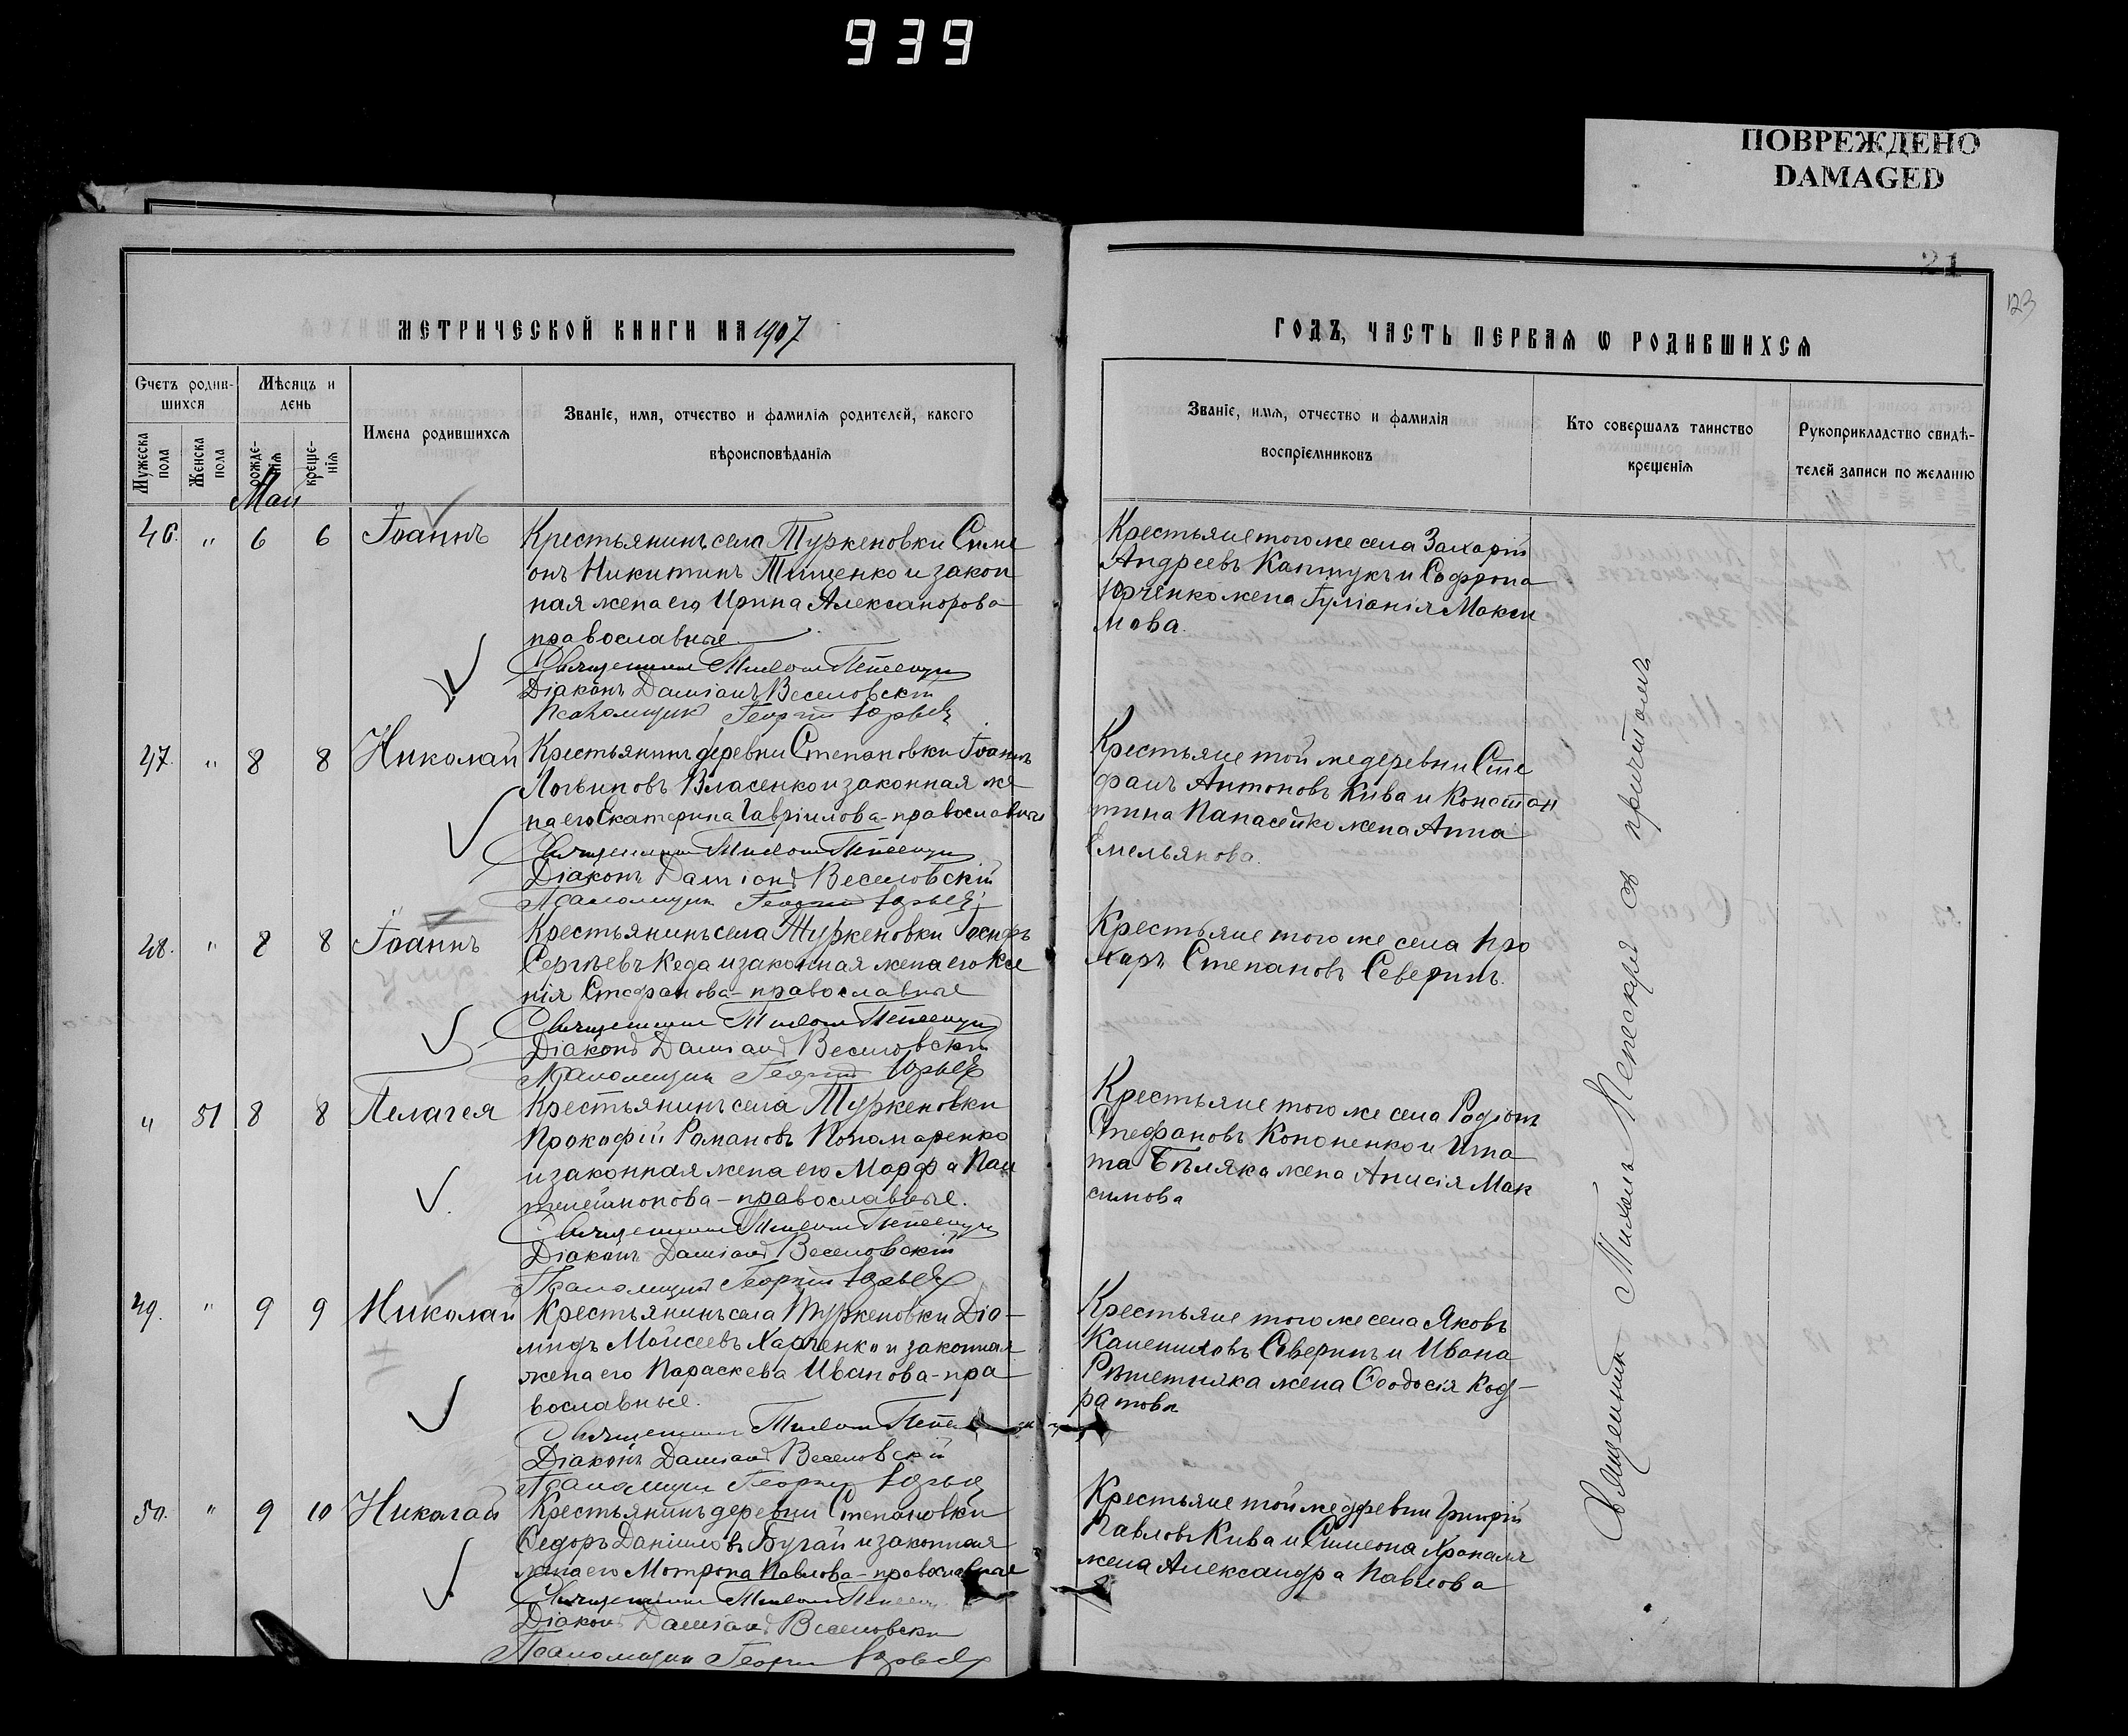 939
ПОВРЕЖДЕНО
DAMAGED
21
123
МЕТРИЧЕСКОЙ КНИГИ НА 1907
ГОДЪ, ЧАСТЬ ПЕРВАЯ Ѡ РОДИВШИХСЯ
Счетъ родив-
шихся
Мужеска пола
Женска пола
Мѣсяцъ и
день
рожде-
нія
креще-
нія
Имена родившихся
Званіе, имя, отчество и фамилія родителей, какого
вѣроисповѣданія
Званіе, имя, отчество и фамилія
воспріемниковъ
Кто совершалъ таинство
крещенія
Рукоприкладство свидѣ-
телей записи по желанію
Май
46. " 6 6 Іоаннъ
Крестьянинъ села Туркеновки Симе
онъ Никитинъ Тищенко и закон
ная жена его Ирина Александрова
православные
Священникъ Михаилъ
Діаконъ Даміанъ Веселовскій
Псаломщикъ Георгій Юрьевъ
Крестьяне того же села Захарій
Андреевъ Каптукъ и Софрона
Юрченко жена Іуліанія Макси
мова.
47. " 8 8 Николай
Крестьянинъ деревни Степановки Іоаннъ
Логвиновъ Власенко и законная же
на его Екатерина Гавріилова - православные
Священникъ Михаилъ
Діаконъ Даміанъ Веселовскій
Псаломщикъ Георгій Юрьевъ
Крестьяне той же деревни Сте
фанъ Антоновъ Кива и Констан
тина Панасейко жена Анна
Емельянова.
48. " 8 8 Іоаннъ
Крестьянинъ села Туркеновки Іосифъ
Сергѣевъ Кеда и законная жена его Ксе
нія Стефанова - православные
Священникъ Михаилъ
Діаконъ Даміанъ Веселовскій
Псаломщикъ Георгій Юрьевъ
Крестьяне того же села Про
хоръ Степановъ Северинъ.
" 51 8 8 Пелагея
Крестьянинъ села Туркеновки
Прокофій Романовъ Пономаренко
и законная жена его Марфа Пан
телеимонова - православные.
Священникъ Михаилъ
Діаконъ Даміанъ Веселовскій
Псаломщикъ Георгій Юрьевъ
Крестьяне того же села Родіонъ
Стефановъ Кононенко и Игна
та Бѣляка жена Анисія Мак
симова
49. " 9 9 Николай
Крестьянинъ села Туркеновки Діо-
мидъ Моисеевъ Харченко и законная
жена его Параскева Иванова - пра
вославные.
Священникъ Михаилъ
Діаконъ Даміанъ Веселовскій
Псаломщикъ Георгій Юрьевъ
Крестьяне того же села Яковъ
Северинъ и Ивана
Рѣшетняка жена Ѳеодосія Код-
ратова
50. " 9 10 Николай
Крестьянинъ деревни Степановки
Ѳедоръ Даніиловъ Бугай и законная
жена его Мотрона Павлова - православные
Священникъ Михаилъ
Діаконъ Даміанъ Веселовскій
Псаломщикъ Георгій Юрьевъ
Крестьяне той же деревни Григорій
Павловъ Кива и Симеона Храпаля
жена Александра Павлова
Священникъ Михаилъ Пепескуря съ причтомъ